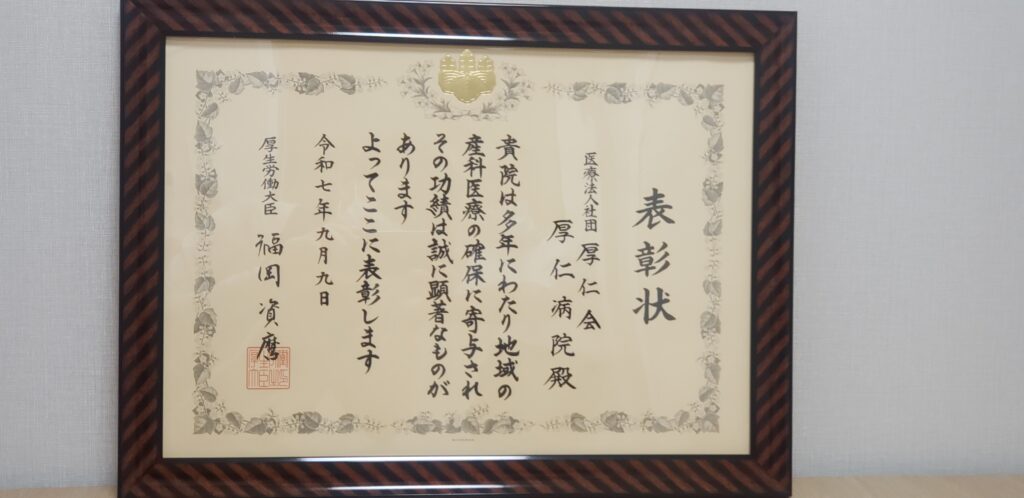 表彰状
医療法人社団 厚仁会
厚仁病院殿
貴院は多年にわたり地域の
産科医療の確保に寄与され
その功績は誠に顕著なものが
あります
よってここに表彰します
令和七年九月九日
厚生労働大臣 福岡資麿